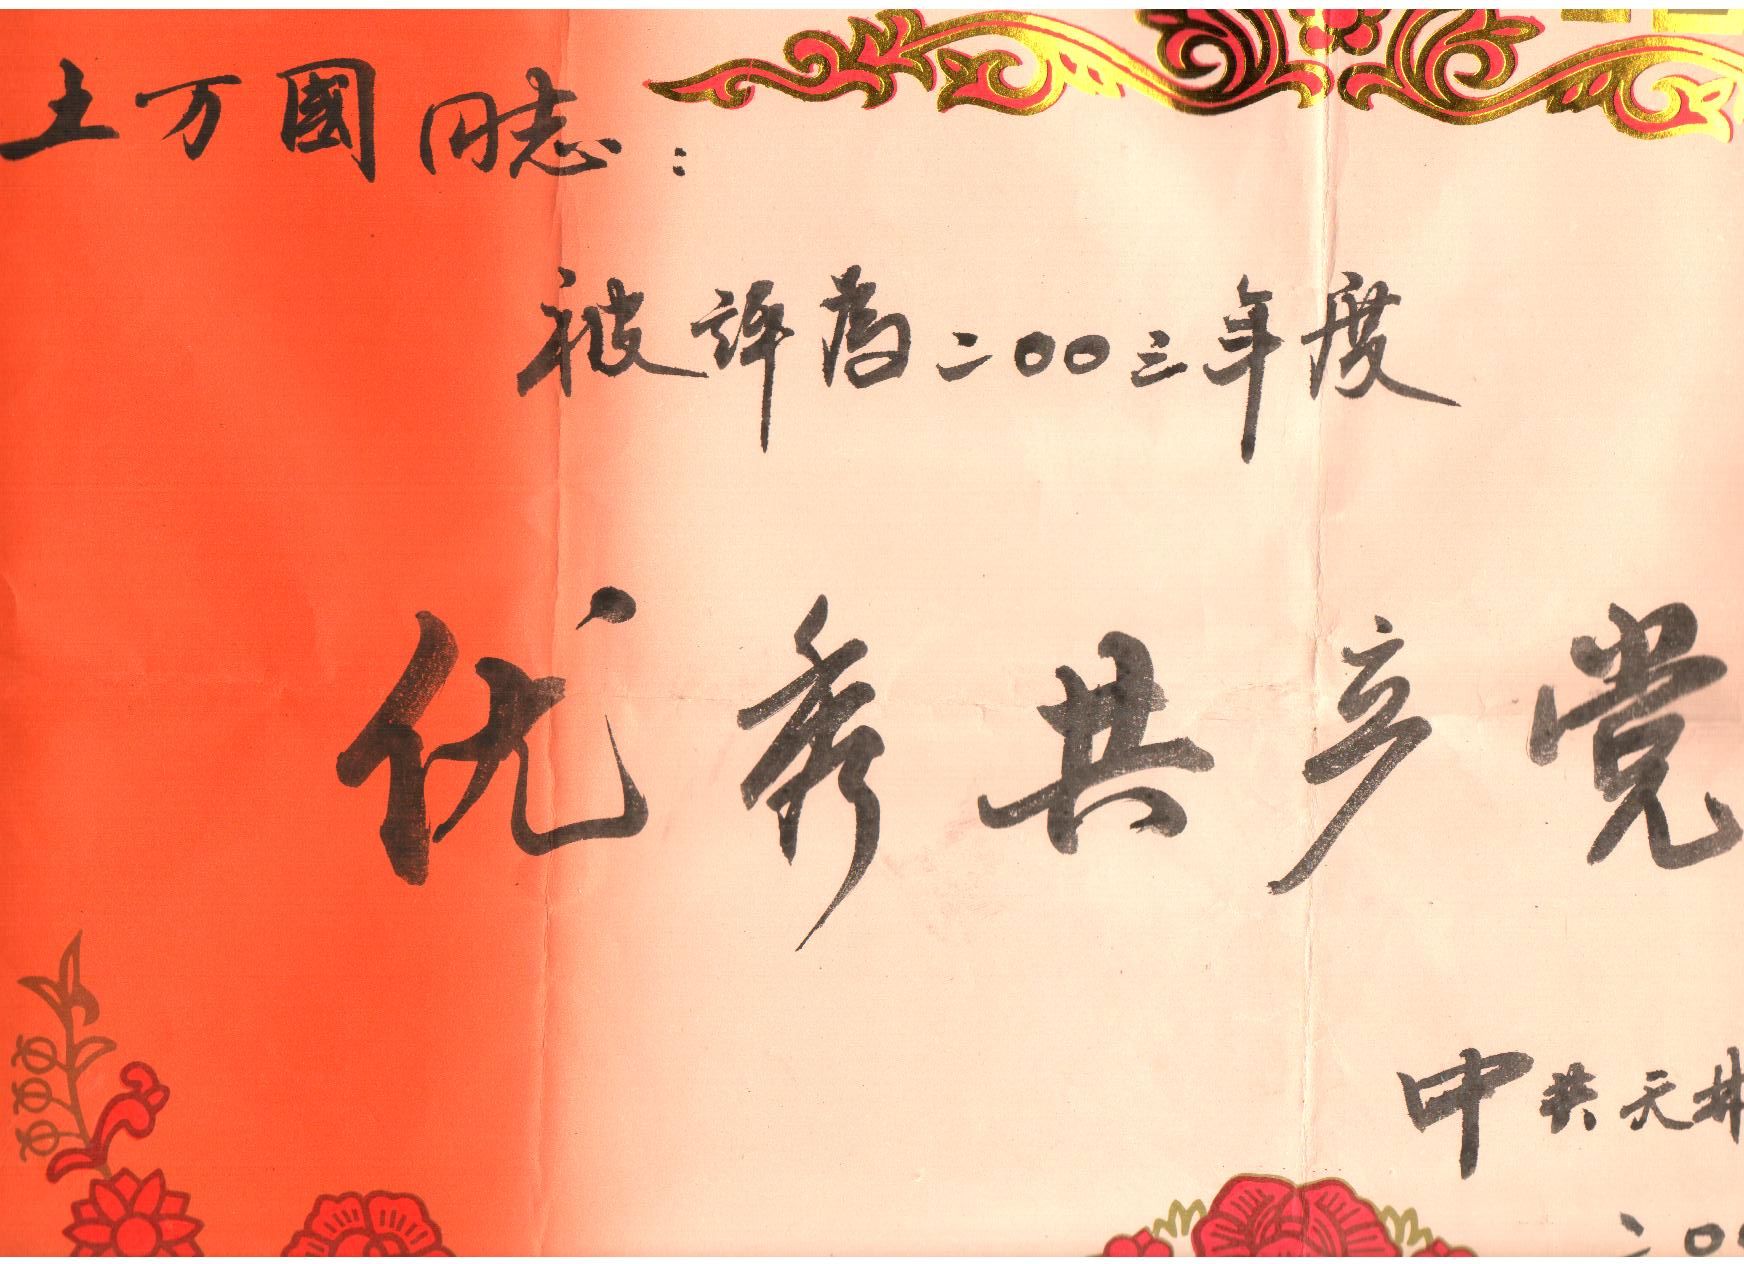 王万國同志：
被评为二〇〇三年度
优秀共产党
中共天井
二〇